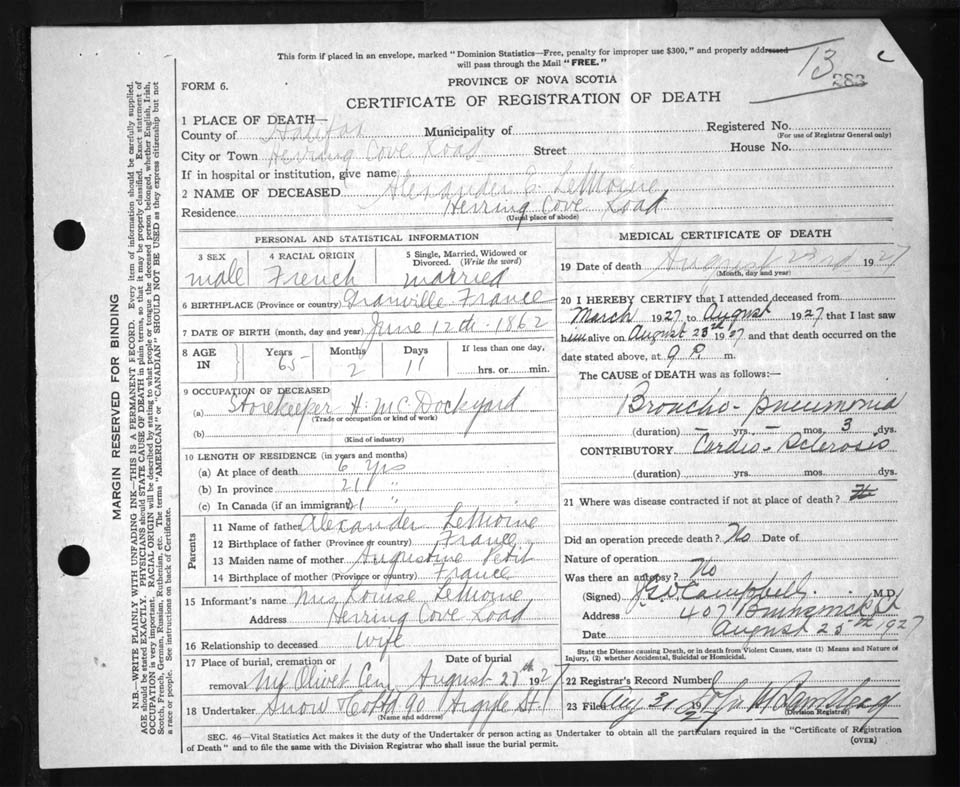 This form if placed in an envelope, marked "Dominion Statistics—Free, penalty for improper use $300," and properly addressed
will pass through the Mail "FREE."
13
283
c
FORM 6.
PROVINCE OF NOVA SCOTIA
CERTIFICATE OF REGISTRATION OF DEATH
MARGIN RESERVED FOR BINDING
N.B.—WRITE PLAINLY WITH UNFADING INK—THIS IS A PERMANENT RECORD. Every item of information should be carefully supplied.
AGE should be stated EXACTLY. PHYSICIANS should STATE CAUSE OF DEATH in plain terms, so that it may be properly classified. Exact statement of
OCCUPATION is very important. RACIAL ORIGIN will be described by stating to what people or tongue the deceased person belonged, whether English, Irish,
Scotch, French, German, Russian, Ruthenian, etc. The terms "AMERICAN" or "CANADIAN" SHOULD NOT BE USED as they express citizenship but not
a race or people. See instructions on back of Certificate.
1 PLACE OF DEATH—
County of Halifax Municipality of Registered No.
(For use of Registrar General only)
City or Town Herring Cove Road Street House No.
If in hospital or institution, give name
2 NAME OF DECEASED Alexander E. LeMoine
Residence Herring Cove Road
(Usual place of abode)
PERSONAL AND STATISTICAL INFORMATION
3 SEX male
4 RACIAL ORIGIN French
5 Single, Married, Widowed or Divorced. (Write the word) married
6 BIRTHPLACE (Province or country) Granville France
7 DATE OF BIRTH (month, day and year) June 12th. 1862
8 AGE IN Years 65 Months 2 Days 11 If less than one day, hrs. or min.
9 OCCUPATION OF DECEASED
(a) Storekeeper H. M. C. Dockyard
(Trade or occupation or kind of work)
(b)
(Kind of industry)
10 LENGTH OF RESIDENCE (in years and months)
(a) At place of death 6 Yrs
(b) In province 21 "
(c) In Canada (if an immigrant) "
Parents
11 Name of father Alexander LeMoine
12 Birthplace of father (Province or country) France
13 Maiden name of mother Augustine Petit
14 Birthplace of mother (Province or country) France
15 Informant's name Mrs Louise LeMoine
Address Herring Cove Road
16 Relationship to deceased wife
17 Place of burial, cremation or removal Mt Olivet Cem Date of burial August 27th 1927
18 Undertaker Snow & Co Ltd 90 Argyle St.
(Name and address)
MEDICAL CERTIFICATE OF DEATH
19 Date of death August 23rd 1927
(Month, day and year)
20 I HEREBY CERTIFY that I attended deceased from
March 1927 to August 1927 that I last saw
him alive on August 23rd 1927 and that death occurred on the
date stated above, at 9 P. m.
The CAUSE of DEATH was as follows:—
Broncho-pneumonia
(duration) — yrs. — mos. 3 dys.
CONTRIBUTORY Cardio-Sclerosis
(duration) yrs. mos. dys.
21 Where was disease contracted if not at place of death?
Did an operation precede death? No Date of
Nature of operation
Was there an autopsy? No
(Signed) Campbell M.D.
Address 407 Brunswick St
Date August 25th 1927
State the Disease causing Death, or in death from Violent Causes, state (1) Means and Nature of
Injury, (2) whether Accidental, Suicidal or Homicidal.
22 Registrar's Record Number
23 Filed Aug 31 1927
(Division Registrar)
SEC. 46—Vital Statistics Act makes it the duty of the Undertaker or person acting as Undertaker to obtain all the particulars required in the "Certificate of Registration
of Death" and to file the same with the Division Registrar who shall issue the burial permit.
(OVER)